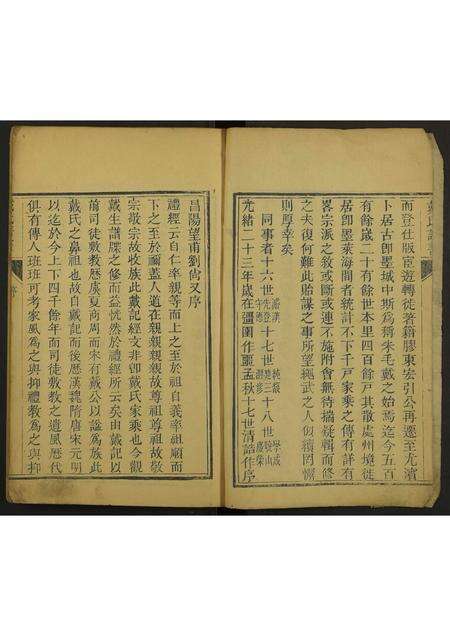 而登仕版宦遊轉徙著籍膠東宏引公再遷至尤濱
卜居古即墨城中斯為得朱毛戴之始焉迄今五百
有餘歲二十有餘世本里四百餘戶其散處州境徙
居即墨萊海間者統計不下千戶家乘之傳有詳有
畧宗派之敘或斷或連不施附會無事揣疑輯而修
之夫復何難此貽謀之事所望繩武之人勿獲罔懈
則厚幸矣
同事者十六世 十七世 十八世
光緒二十三年歲在彊圉作噩孟秋十七世清諮作序
昌陽望甫劉尚又序
禮經云自仁率親等而上之至於祖自義率祖順而
下之至於禰蓋人道在親親親親故尊祖尊祖故敬
宗敬宗故收族此戴記經文非卽戴氏家乘也今觀
戴生譜牒之修而益恍然於禮經所云矣由戴記以
前司徒敷教歷虞夏商周而宋有戴公以諡為族此
戴氏之鼻祖也故自戴記而後歷漢魏隋唐宋元明
以迄於今上下四千餘年而司徒敷教之遺風歷代
俱有傳人班班可考家風為之與抑禮教為之與抑